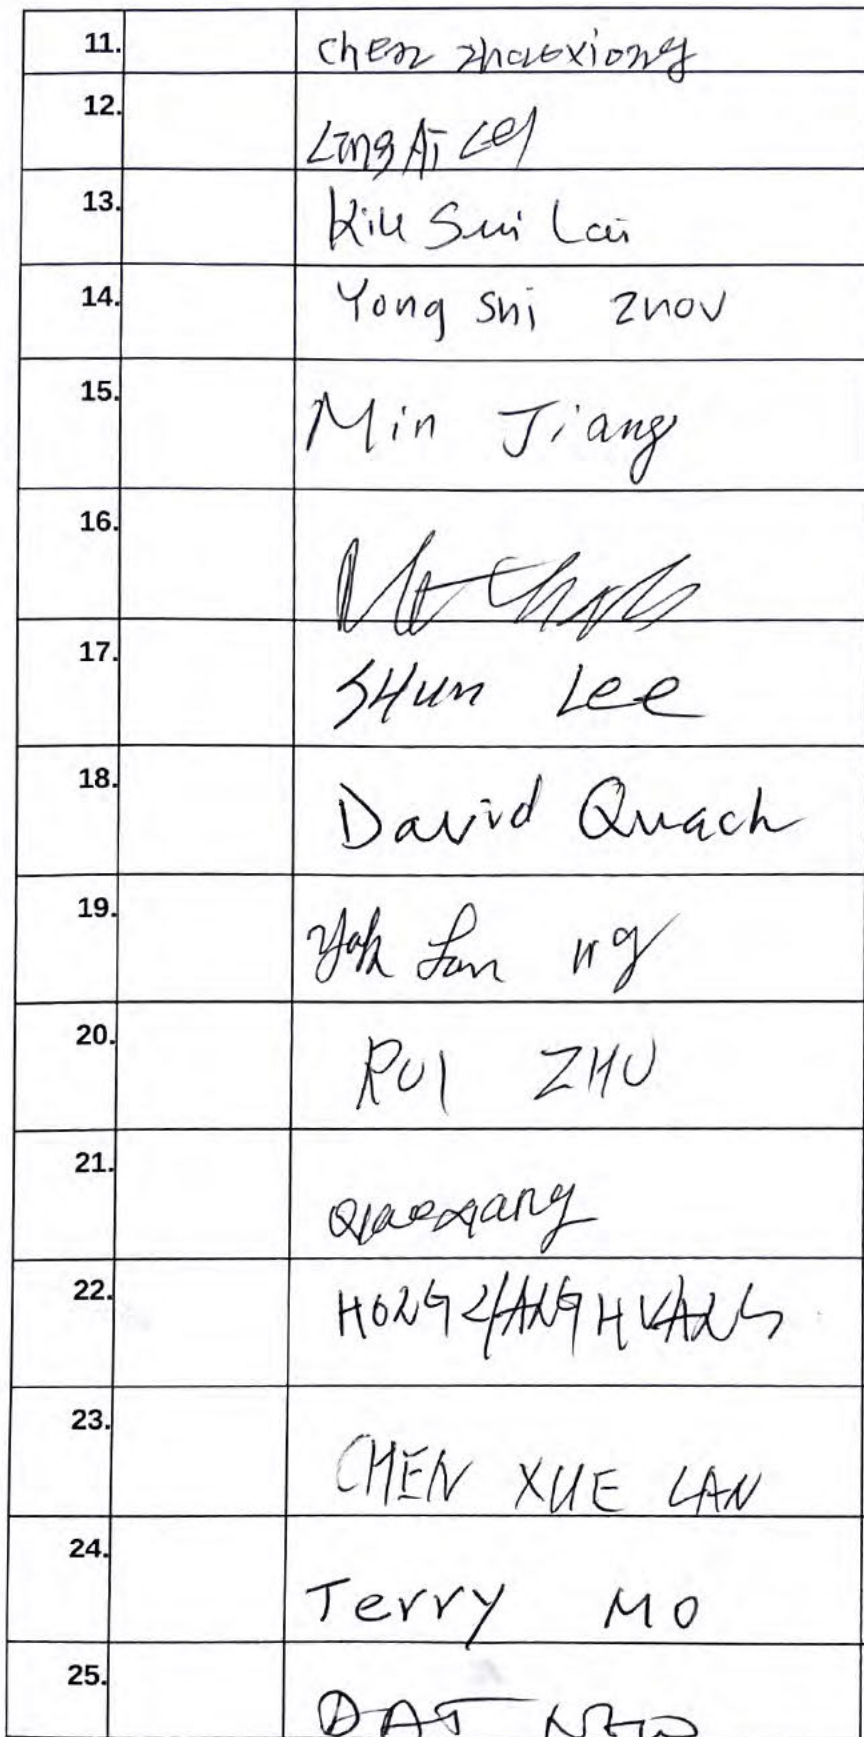 11. Chen Zhaoxiong
12. Ling Ai Lei
13. Kiu Sui Lai
14. Yong Shi Zhov
15. Min Jiang
16.
17. SHun Lee
18. David Quach
19. Yok Lan ng
20. RUI ZHU
21.
22. HONG LIANG HUANG
23. CHEN XUE LAN
24. Terry MO
25. DAT